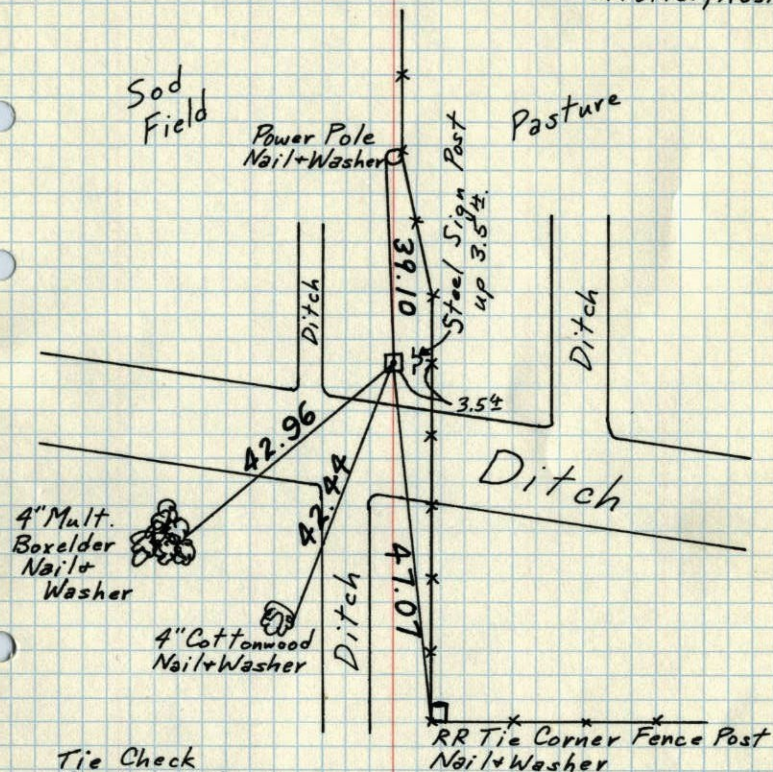 Sod
Field
Pasture
Power Pole
Nail+Washer
Steel Sign Post
up 3.5'±
39.10
Ditch
Ditch
3.5'±
42.96
42.44
Ditch
4" Mult.
Boxelder
Nail+
Washer
47.07
Ditch
4" Cottonwood
Nail+Washer
RR Tie Corner Fence Post
Nail+Washer
Tie Check